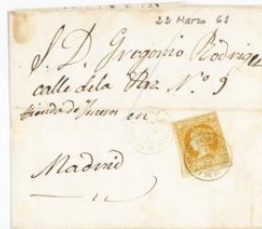 22 Marzo 61
S. D. Gregorio Rodrigu
calle de la Paz N.º 9
tienda de en
Madrid